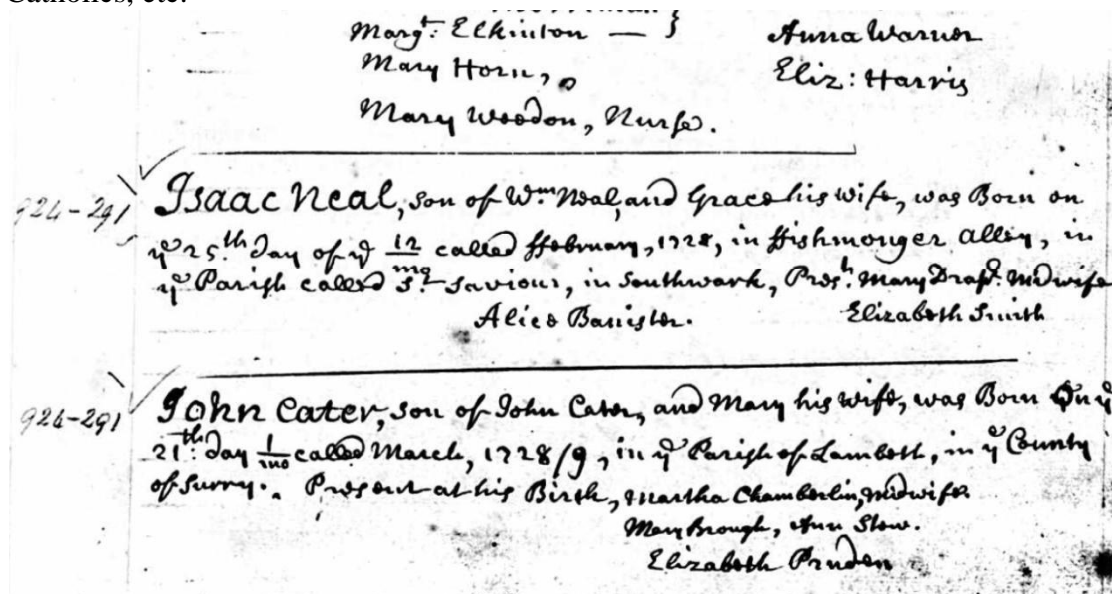 Marg.t Elkinton — }
Anna Warner
Mary Horn,
Eliz: Harris
Mary Weedon, Nurse.
924-291
Isaac Neal, son of W.m Neal, and Grace his wife, was Born on
ye 25.th Day of ye 12/mo called ffebruary, 1728, in ffishmonger Alley, in
ye Parish called St. Saviour, in Southwark, Pres.t Mary Drap.r Midwife
Alice Banister. Elizabeth Smith
924-291
John Cater, son of John Cater, and Mary his wife, was Born On ye
21.th Day 1/mo called March, 1728/9, in ye Parish of Lambeth, in ye County
of Surry. Present at his Birth, Martha Chamberlin, Midwife
Mary Brough, Ann Slow.
Elizabeth Pruden